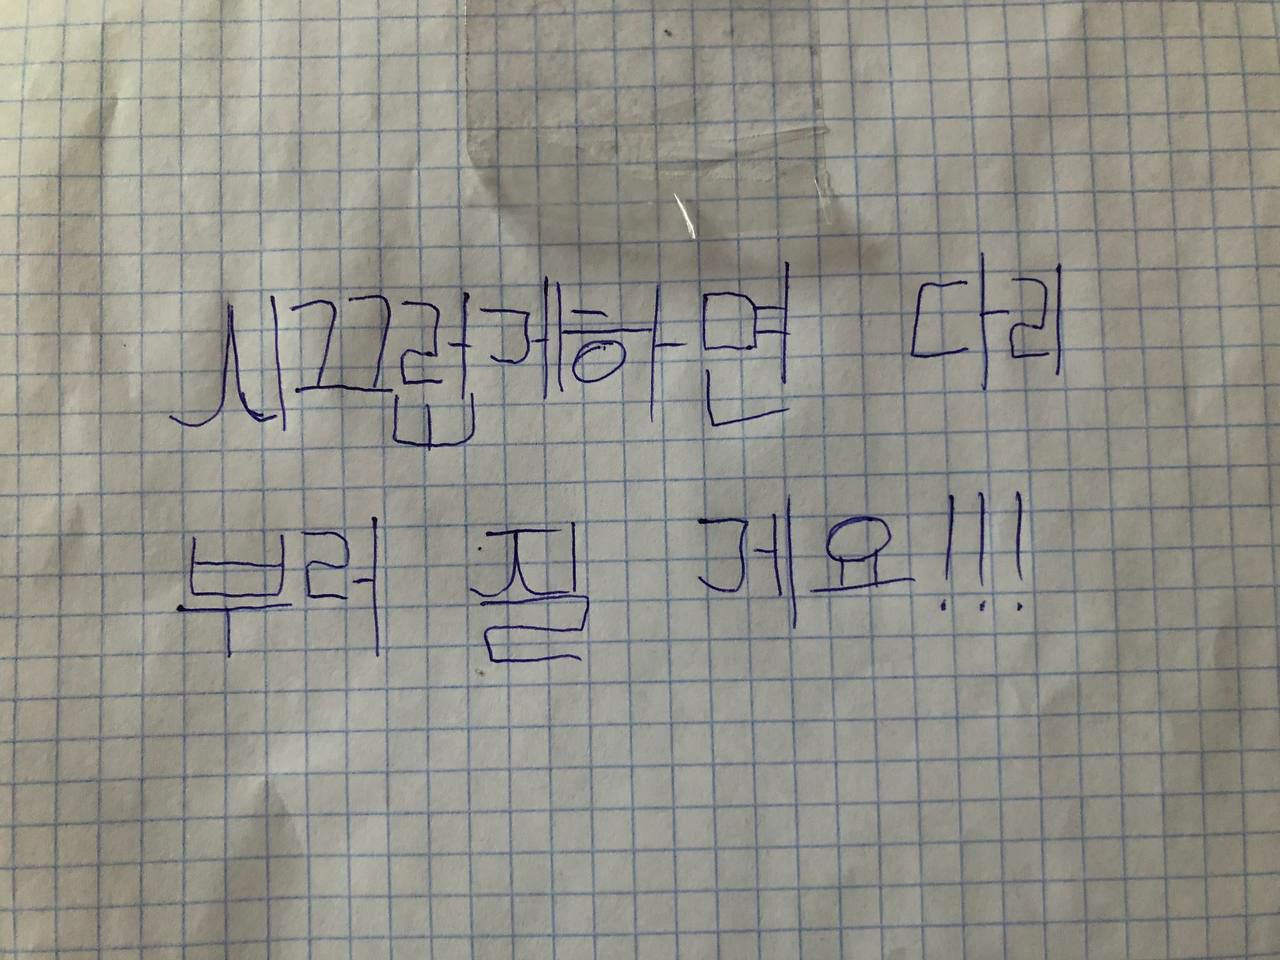 시끄럽게하면 다리
부러 질 게요!!!